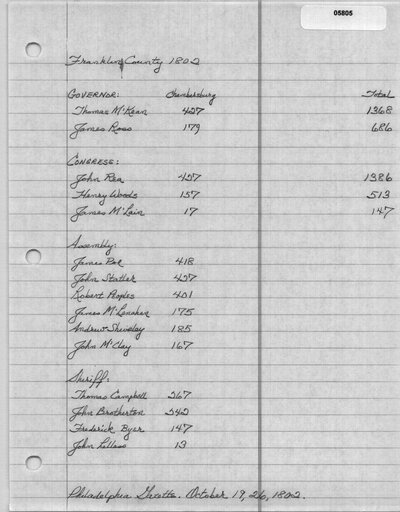 05805
Franklin County 1802
GOVERNOR: Chambersburg Total
Thomas McKean 427 1368
James Ross 179 686
CONGRESS:
John Rea 427 1386
Henry Woods 157 513
James McLain 17 147
Assembly:
James Poe 418
John Statler 427
Robert Peoples 401
James McLenahan 175
Andrew 185
John McClay 167
Sheriff:
Thomas Campbell 267
John Brotherton 242
Frederick Byer 147
John 13
Philadelphia Gazette. October 19, 26, 1802.